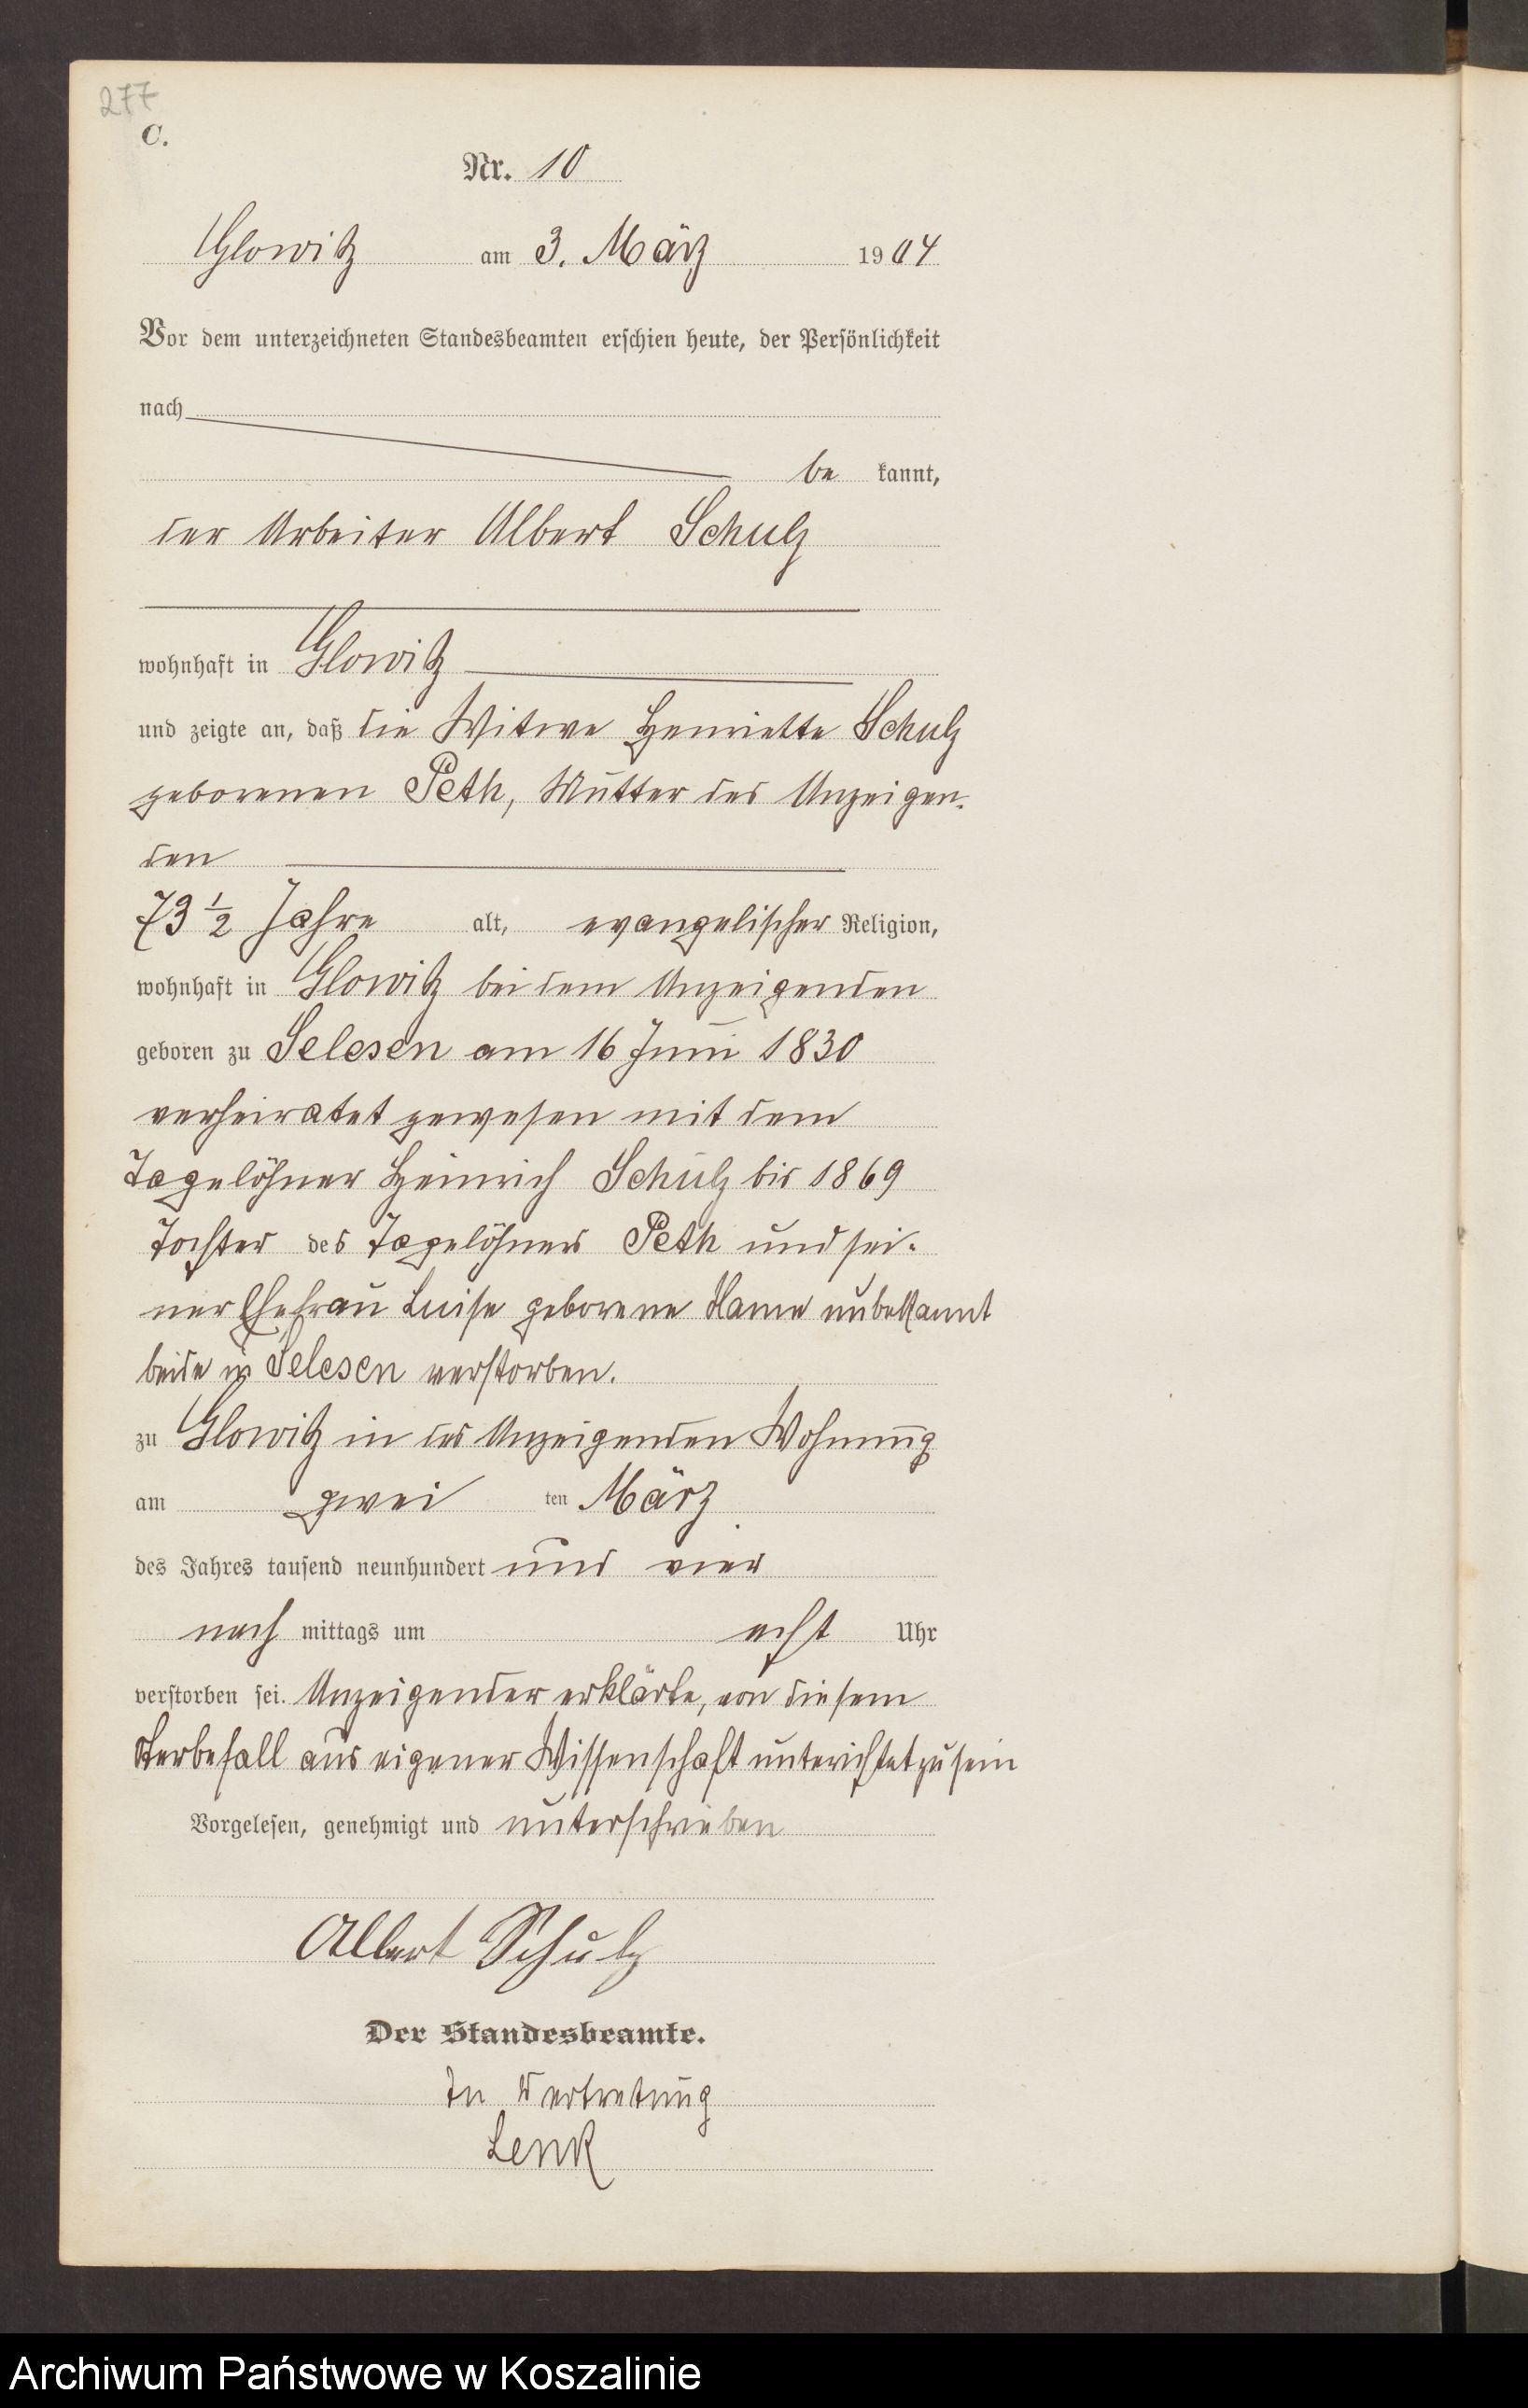 277
C.
Nr. 10
Glowitz am 3. März 1904
Vor dem unterzeichneten Standesbeamten erschien heute, der Persönlichkeit
nach
be kannt,
der Arbeiter Albert Schulz
wohnhaft in Glowitz
und zeigte an, daß die Witwe Henriette Schulz
geborenen Peth, Mutter des Anzeigen-
den
73 1/2 Jahre alt, evangelischer Religion,
wohnhaft in Glowitz bei dem Anzeigenden
geboren zu Selesen am 16 Juni 1830
verheiratet gewesen mit dem
Tagelöhner Heinrich Schulz bis 1869
Tochter des Tagelöhners Peth und sei-
ner Ehefrau Luise geborene Name unbekannt
beide in Selesen verstorben.
zu Glowitz in des Anzeigenden Wohnung
am zwei ten März
des Jahres tausend neunhundert und vier
nach mittags um acht Uhr
verstorben sei. Anzeigender erklärte, von diesem
Sterbefall aus eigener Wissenschaft unterichtet zu sein
Vorgelesen, genehmigt und unterschrieben
Albert Schulz
Der Standesbeamte.
In Vertretung
Lenk
Archiwum Państwowe w Koszalinie